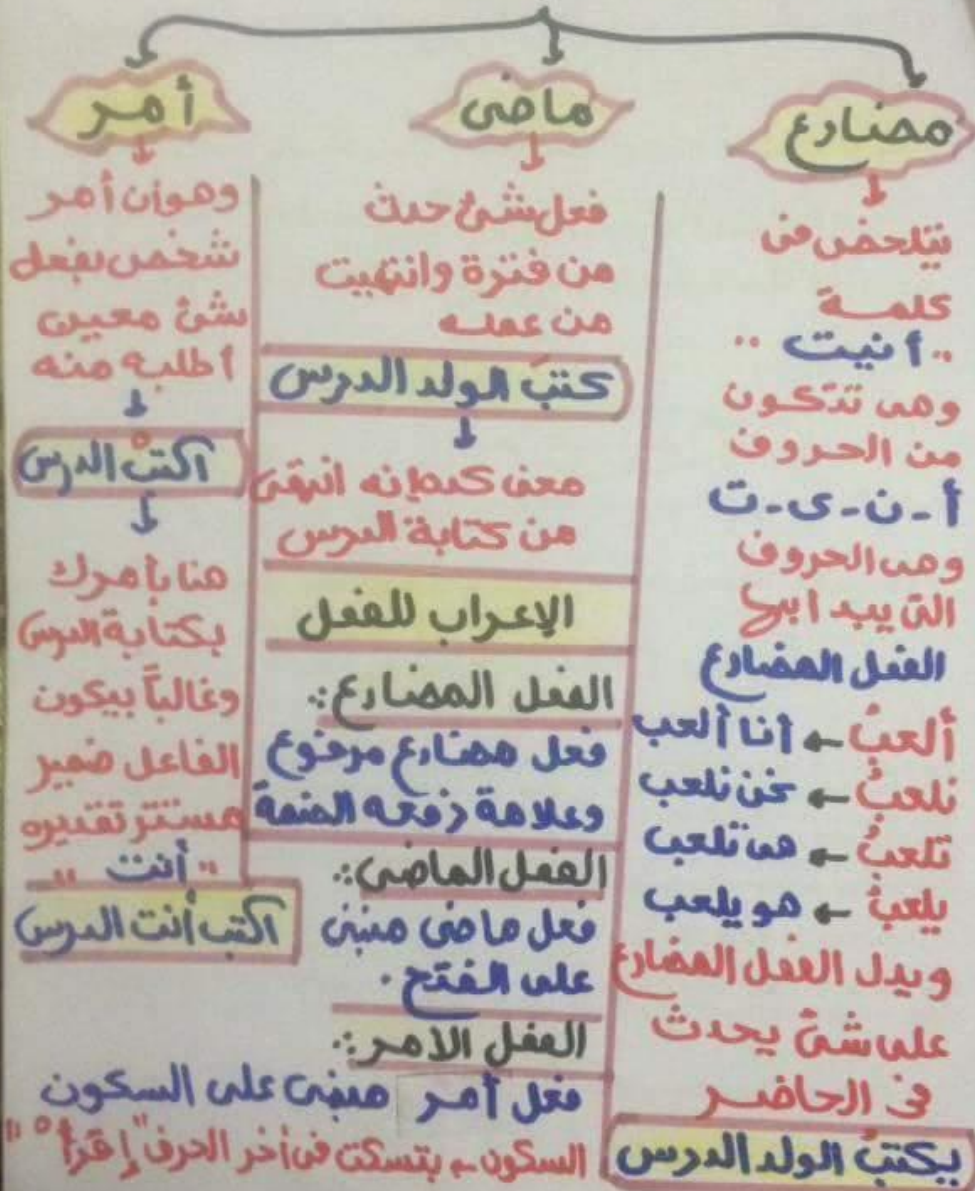 مضارع
يتلخص فى
كلمة
"أنيت"
وهى تتكون
من الحروف
أ - ن - ى - ت
وهى الحروف
التى يبدا بها
الفعل المضارع
ألعبُ ← أنا ألعب
نلعبُ ← نحن نلعب
تلعبُ ← هى تلعب
يلعبُ ← هو يلعب
ويدل الفعل المضارع
على شئ يحدث
فى الحاضر
يكتبُ الولد الدرس
ماضى
فعل شئ حدث
من فترة وانتهيت
من عمله
كتبَ الولد الدرس
معنى كده إنه انتهى
من كتابة الدرس
الإعراب للفعل
الفعل المضارع:.
فعل مضارع مرفوع
وعلامة رفعه الضمة
الفعل الماضى:.
فعل ماضى مبنى
على الفتح.
الفعل الامر:.
فعل أمر مبنى على السكون
السكون ← بتسكت فى أخر الحرف "إقرأْ"
أمر
وهو أن أمر
شخص بفعل
شئ معين
أطلبه منه
اكتبْ الدرس
هنا بأمرك
بكتابة الدرس
وغالباً بيكون
الفاعل ضمير
مستتر تقديره
"أنت"
اكتب أنت الدرس